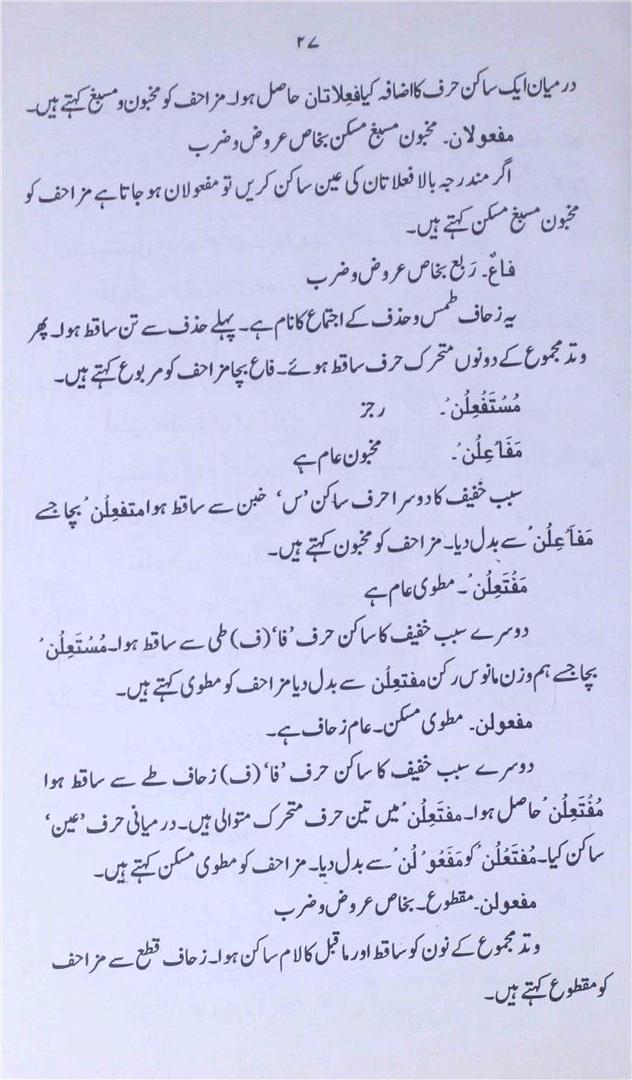 ۲۷
درمیان ایک ساکن حرف کا اضافہ کیا فعِلاتان حاصل ہوا۔ مزاحف کو مخبون و مسبغ کہتے ہیں۔
مفعولان۔ مخبون مسبغ مسکن بخاص عروض و ضرب
اگر مندرجہ بالا فعلاتان کی عین ساکن کریں تو مفعولان ہو جاتا ہے مزاحف کو
مخبون مسبغ مسکن کہتے ہیں۔
فاعْ۔ رَبع بخاص عروض و ضرب
یہ زحاف طمس و حذف کے اجتماع کا نام ہے۔ پہلے حذف سے تن ساقط ہوا۔ پھر
وتد مجموع کے دونوں متحرک حرف ساقط ہوئے۔ فاع بچا مزاحف کو مربوع کہتے ہیں۔
مُسْتَفْعِلُن ْ۔ رجز
مَفَاعِلُن ْ۔ مخبون عام ہے
سبب خَفیف کا دوسرا حرف ساکن ’س‘ خبن سے ساقط ہوا متفعِلُن ْ بچا جسے
مَفَاعِلُن ْ سے بدل دیا۔ مزاحف کو مخبون کہتے ہیں۔
مَفْتَعِلُن ْ۔ مطوی عام ہے
دوسرے سبب خفیف کا ساکن حرف ’فا‘ (ف) طی سے ساقط ہوا۔ مُسْتَعِلُن ْ
بچا جسے ہم وزن مانوس رکن مفتعِلُن سے بدل دیا مزاحف کو مطوی کہتے ہیں۔
مفعولن۔ مطوی مسکن۔ عام زحاف ہے۔
دوسرے سبب خفیف کا ساکن حرف ’فا‘ (ف) زحاف طے سے ساقط ہوا
مُفْتَعِلُن ْ حاصل ہوا۔ مفتَعِلُن ْ میں تین حرف متحرک متوالی ہیں۔ درمیانی حرف ’عین‘
ساکن کیا۔ مُفتَعْلُن ْ کو مَفَعُو ْ لُن ْ سے بدل دیا۔ مزاحف کو مطوی مسکن کہتے ہیں۔
مفعولن۔ مقطوع۔ بخاص عروض و ضرب
وتد مجموع کے نون کو ساقط اور ماقبل کا لام ساکن ہوا۔ زحاف قطع سے مزاحف
کو مقطوع کہتے ہیں۔